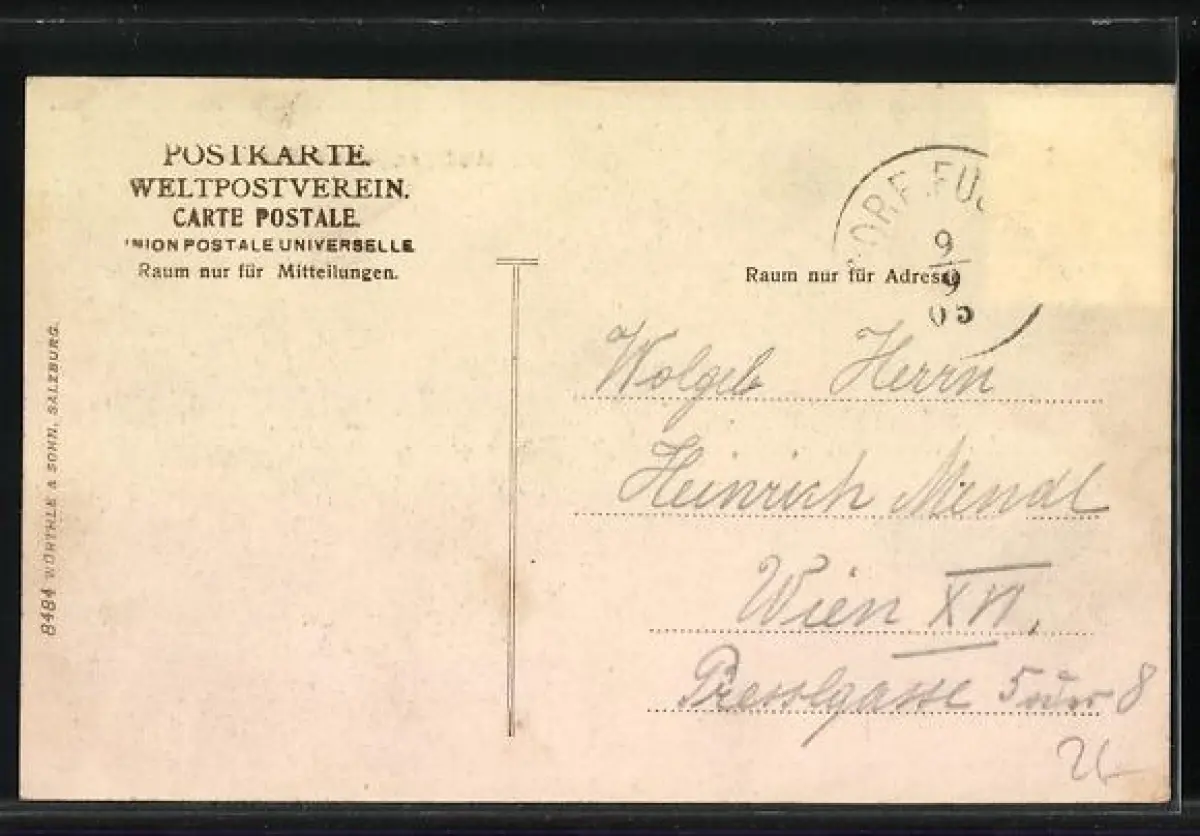 POSTKARTE.
WELTPOSTVEREIN.
CARTE POSTALE.
UNION POSTALE UNIVERSELLE
Raum nur für Mitteilungen.
8484 WÜRTHLE & SOHN, SALZBURG.
DORF FUS
9
9
05
Raum nur für Adresse
Wolgeb Herrn
Heinrich Mendl
Wien XVI.
Presslgasse 5 oder 8